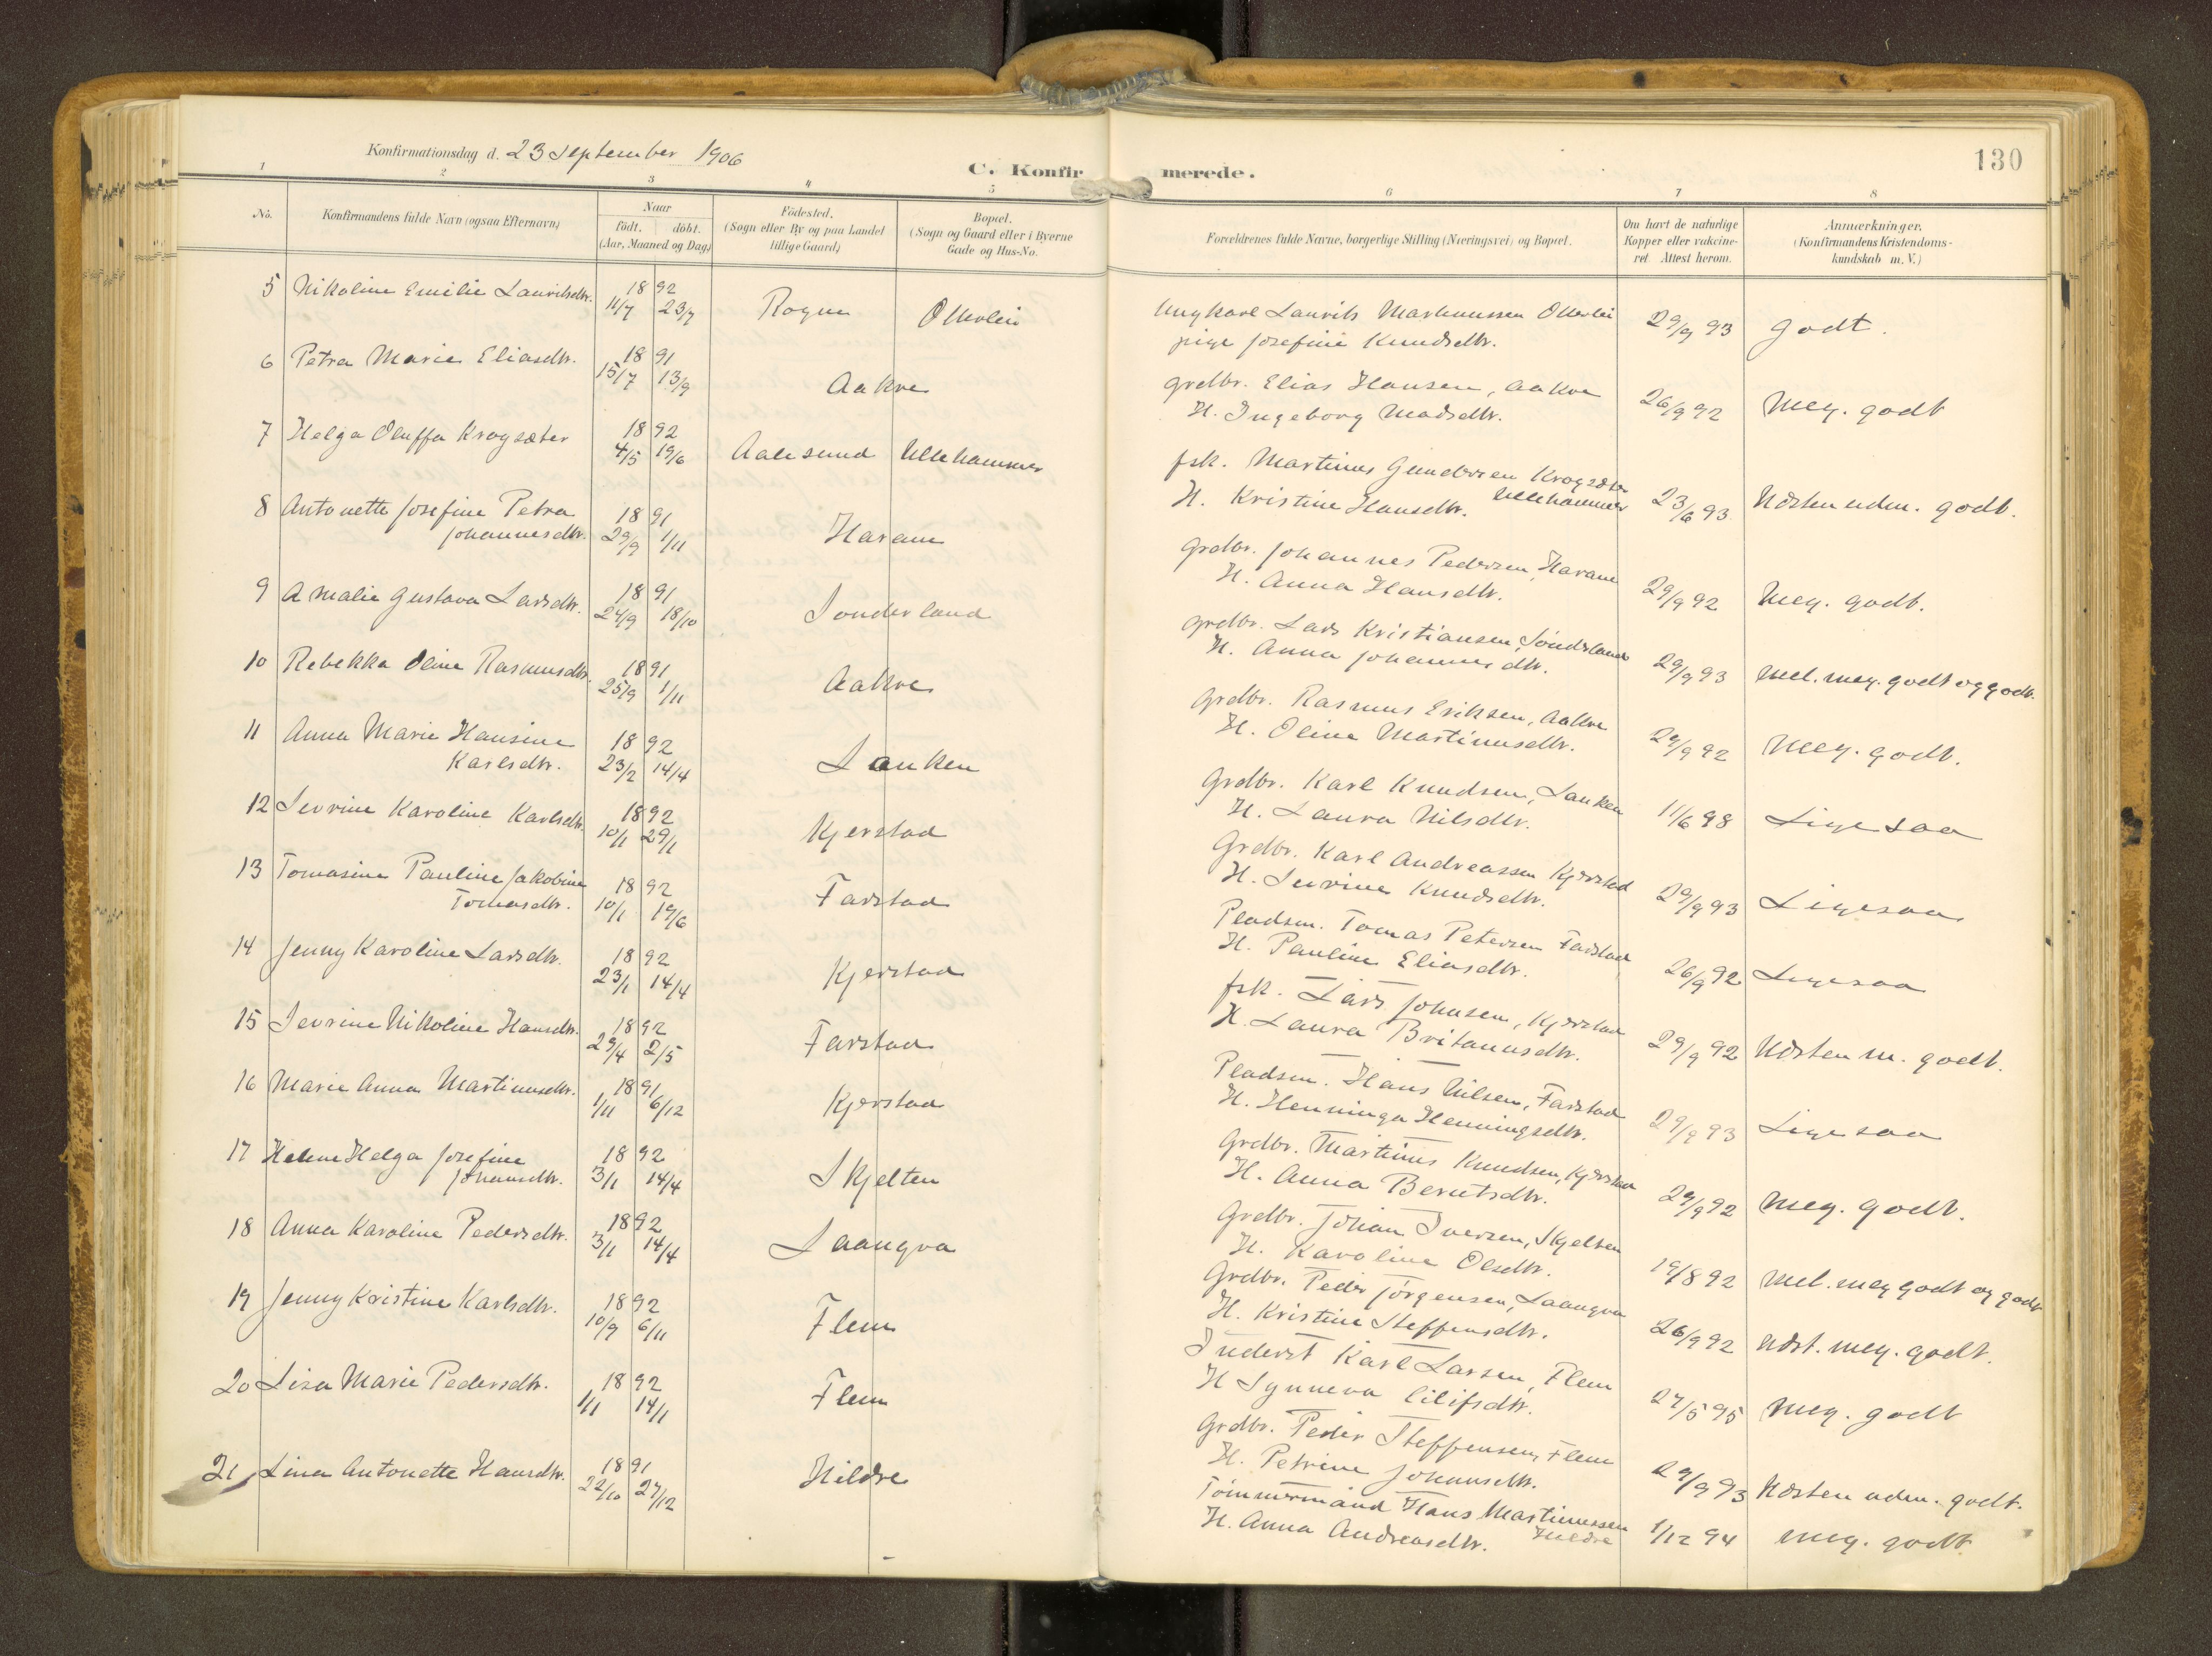 Konfirmationsdag d. 23 September 1906
C. Konfirmerede.
130
1 2 3 4 5 6 7 8
No.
Konfirmandens fulde Navn (ogsaa Efternavn)
Naar
födt. döbt.
(Aar, Maaned og Dag)
Födested.
(Sogn eller By og paa Landet
tillige Gaard)
Bopæl.
(Sogn og Gaard eller i Byerne
Gade og Hus-No.
Forældrenes fulde Navne, borgerlige Stilling (Næringsvei) og Bopæl.
Om havt de naturlige
Kopper eller vakcine-
ret Attest herom.
Anmærkninger.
(Konfirmandens Kristendoms-
kundskab m. V.)
5 Nikoline Emilie Lauritsdtr. 1892 11/7 23/7 Rogne Otterlei
Ungkarl Laurits Markussen Otterlei
pige Josefine Knudsdtr.
29/9 93 godt.
6 Petra Marie Eliasdtr. 1891 15/7 13/9 Aakre
grdbr. Elias Hansen, Aakre
H. Ingeborg Madsdtr.
26/9 92 Meg. godt
7 Helga Oluffa Krogsæter 1892 4/5 19/6 Aalesund Ullehammer
fsk. Martinus Gundersen Krogsæter
H. Kristine Hansdtr. Ullehammer
23/6 93 Næsten udm. godt.
8 Antonette Josefine Petra
Johannesdtr. 1891 29/9 1/11 Haram
Grdbr. Johannes Pedersen, Haram
H. Anna Hansdtr.
29/9 92 Meg. godt.
9 Amalie Gustava Larsdtr. 1891 24/9 18/10 Sønderland
grdbr. Lars Kristiansen, Sønderland
H. Anna Johannesdtr.
29/9 93 Mel. meg. godt og godt.
10 Rebekka Oline Rasmusdtr. 1891 25/9 1/11 Aakre
Grdbr. Rasmus Eriksen, Aakre
H. Oline Martinusdtr.
29/9 92 Meg. godt.
11 Anna Marie Hansine
Karlsdtr. 1892 23/2 14/4 Lauken
Grdbr. Karl Knudsen, Lauken
H. Laura Nilsdtr.
11/6 98 Ligesaa
12 Sevrine Karoline Karlsdtr. 1892 10/1 29/1 Kjerstad
Grdbr. Karl Andreassen Kjerstad
H. Sevrine Knudsdtr.
29/9 93 Ligesaa
13 Tomasine Pauline Jakobine
Tomasdtr. 1892 10/1 19/6 Farstad
Pladsm. Tomas Petersen Farstad
H. Pauline Eliasdtr.
26/9 92 Ligesaa
14 Jenny Karoline Larsdtr. 1892 23/1 14/4 Kjerstad
fsk. Lars Johnsen, Kjerstad
H. Laura Britanusdtr.
29/9 92 Næsten m. godt.
15 Sevrine Nikoline Hansdtr. 1892 29/4 2/5 Farstad
Pladsm. Hans Nilsen, Farstad
H. Henninga Henningsdtr.
29/9 93 Ligesaa
16 Marie Anna Martinusdtr. 1891 1/11 6/12 Kjerstad
Grdbr. Martinus Knudsen, Kjerstad
H. Anna Berntsdtr.
29/9 92 Meg. godt.
17 Helene Helga Josefine
Johansdtr. 1892 3/1 14/4 Skjelten
Grdbr. Johan Iversen, Skjelten
H. Karoline Olsdtr.
19/8 92 Mel. meg godt og godt
18 Anna Karoline Pedersdtr. 1892 3/1 14/4 Laangva
Grdbr. Peder Jørgensen, Laangva
H. Kristine Steffensdtr.
26/9 92 Næst. meg. godt.
19 Jenny Kristine Karlsdtr. 1892 10/9 6/11 Flem
Inderst Karl Larsen, Flem
H Synneva Eilifsdtr.
27/5 95 Meg. godt
20 Lisa Marie Pedersdtr. 1892 1/1 14/1 Flem
Grdbr. Peder Steffensen, Flem
H. Petrine Johansdtr.
29/9 93 Næsten udm. godt.
21 Lina Antonette Hansdtr. 1891 22/10 27/12 Hildre
Tømmermand Hans Martinussen
H. Anna Andreasdtr. Hildre
1/12 94 Meg. godt